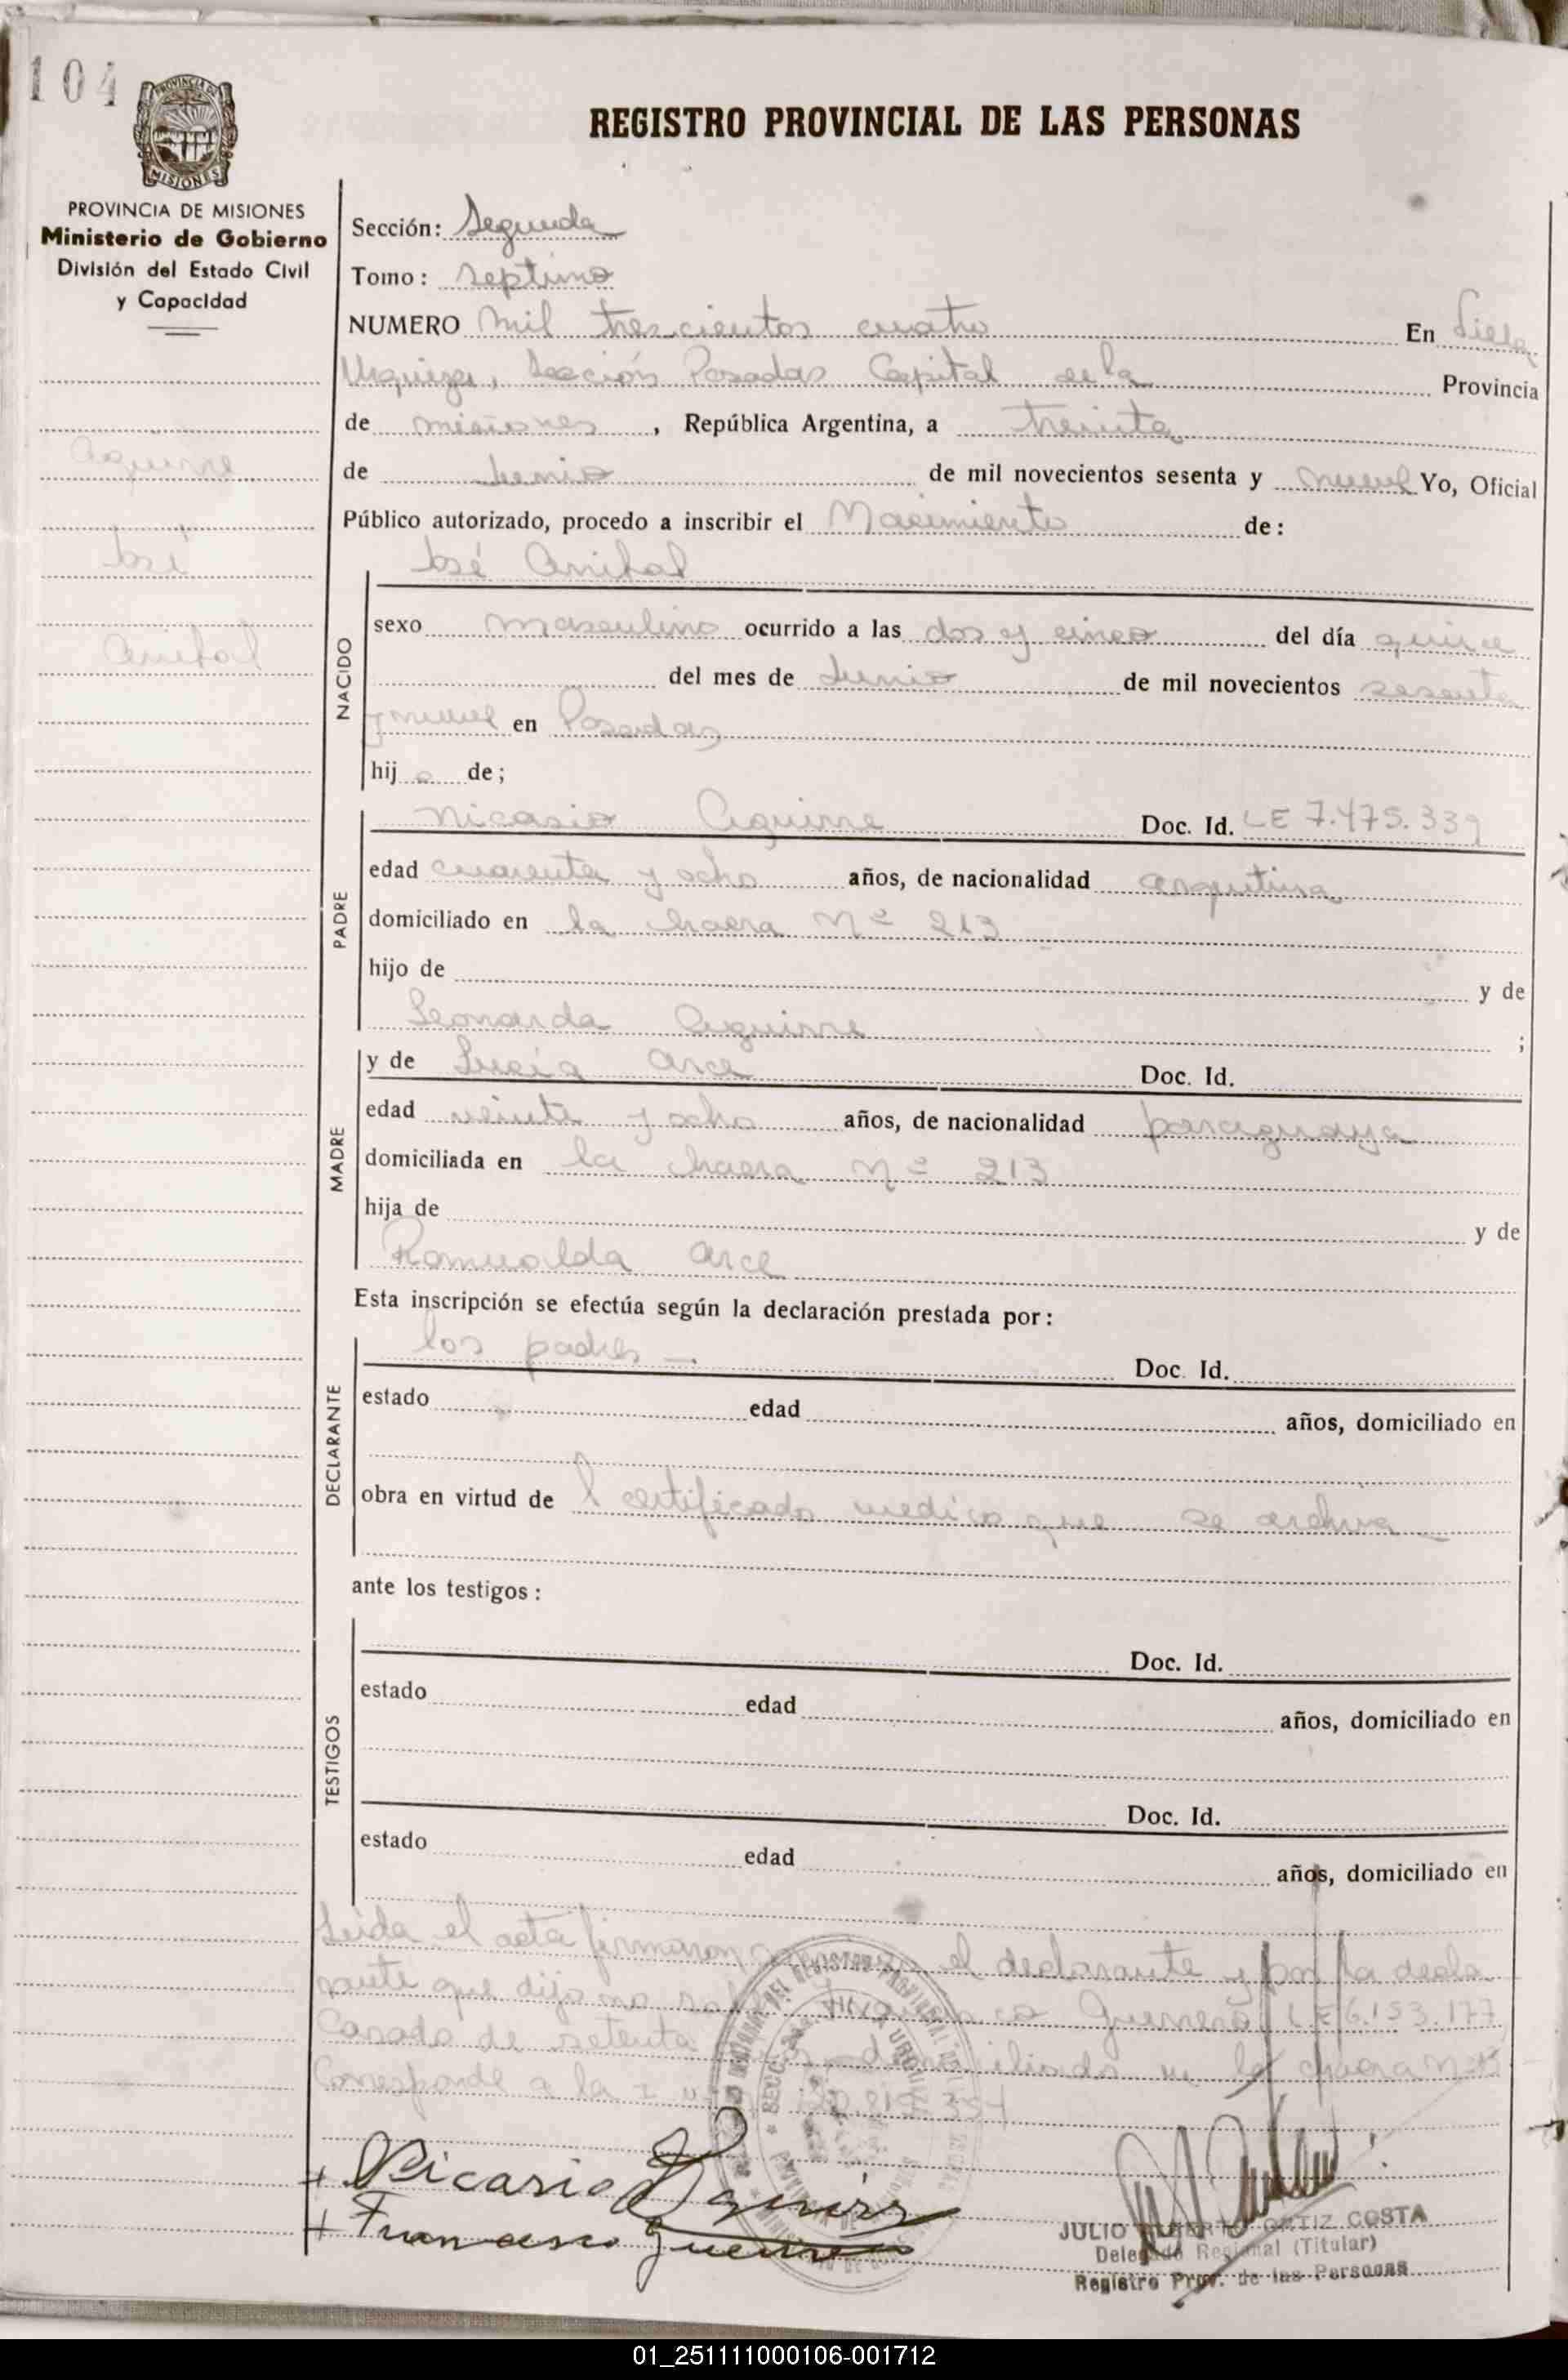 104
REGISTRO PROVINCIAL DE LAS PERSONAS
PROVINCIA DE MISIONES
Ministerio de Gobierno
División del Estado Civil
y Capacidad
Sección: Segunda
Tomo: septimo
NUMERO mil trescientos cuatro En Villa
Urquiza, Sección Posadas Capital de la Provincia
de misiones, República Argentina, a treinta
de Junio de mil novecientos sesenta y nueve Yo, Oficial
Público autorizado, procedo a inscribir el Nacimiento de:
Aguirre
José
Anibal
NACIDO
José Anibal
sexo masculino ocurrido a las dos y cinco del día quince
del mes de Junio de mil novecientos sesenta
y nueve en Posadas
hijo de;
PADRE
Nicasio Aguirre Doc. Id. LE 7.475.339
edad cuarenta y ocho años, de nacionalidad argentina
domiciliado en la chacra Nº 213
hijo de y de
Leonarda Aguirre ;
MADRE
y de Lucia Arce Doc. Id.
edad veinte y ocho años, de nacionalidad paraguaya
domiciliada en la chacra Nº 213
hija de y de
Romualda Arce
Esta inscripción se efectúa según la declaración prestada por:
DECLARANTE
los padres — Doc. Id.
estado edad años, domiciliado en
obra en virtud de l certificado medico que se archiva —
ante los testigos:
TESTIGOS
Doc. Id.
estado edad años, domiciliado en
Doc. Id.
estado edad años, domiciliado en
Leida el acta firmaron el declarante y por la decla
rante que dijo no Guerrero LE 6.153.177
Casado de setenta domiciliado en la chacra
Corresponde a la
+ Nicasio Aguirre
+ Francisco Guerrero
JULIO ALBERTO ORTIZ COSTA
Delegado Regional (Titular)
Registro Prov. de las Personas
01_251111000106-001712